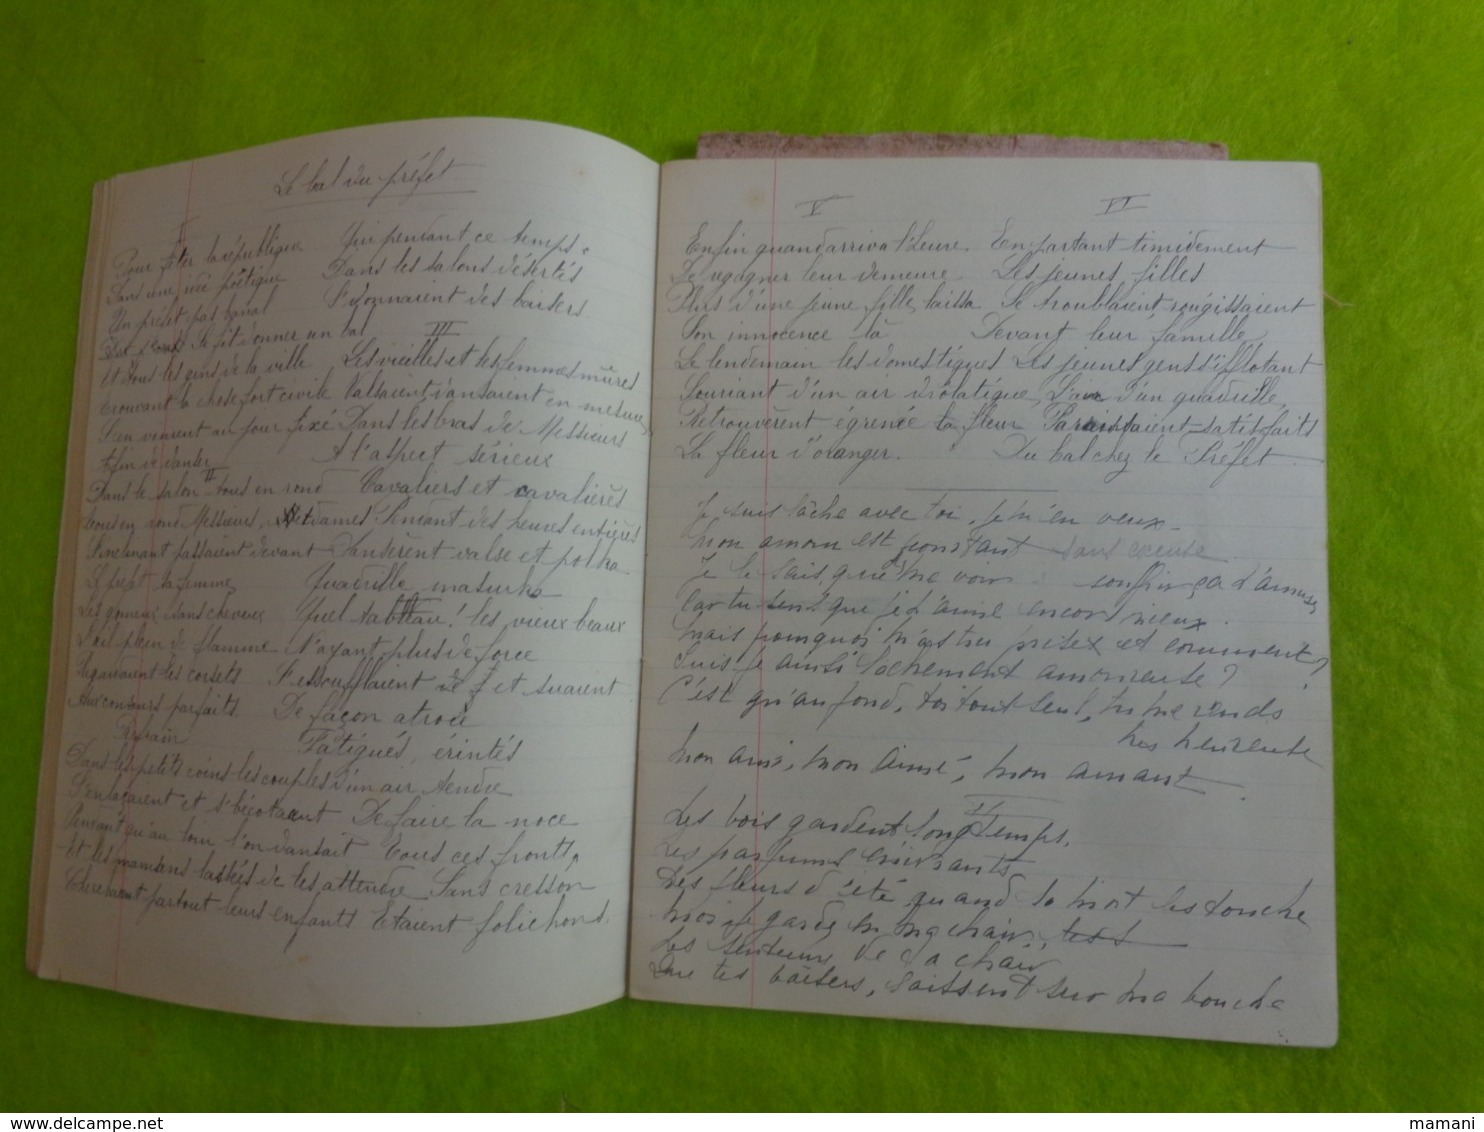 Le bal du préfet
I
Pour fêter la république
Dans une idée poëtique
Un préfet pas banal
Se fit donner un bal
Et tous les gens de la ville
trouvant la chose fort civile
S'en vinrent au jour fixé
Afin de danser
II
Dans le salon tous en rond
tous en rond Messieurs, et dames
S'inclinant passaient devant
Le préfet sa femme
Les gommeux sans cheveux
L'œil plein de flamme
Regardaient les corsets
Aux contours parfaits.
Refrain
Dans les petits coins les couples d'un air tendre
S'enlaçaient et s'bécotaient
Pendant qu'au loin l'on dansait
Et les mamans lassées de les attendre
Cherchaient partout leurs enfants
Qui pendant ce temps
Dans les salons désertés
S'donnaient des baisers.
III
Les vieilles et les femmes mûres
Valsaient, dansaient en mesure,
Dans les bras de Messieurs
A l'aspect sérieux
Cavaliers et cavalières
Pendant des heures entières
Dansèrent valse et polka
Quadrille masurka
Quel tableau! les vieux beaux
N'ayant plus de force
S'essoufflaient et suaient
De façon atroce
Fatigués, érintés
De faire la noce
Tous ces fronts,
Sans cresson
Etaient folichons.
V
Enfin quand arriva l'heure
De regagner leur demeure
Plus d'une jeune fille laissa
Son innocence là
Le lendemain les domestiques
Souriant d'un air drôlatique,
Retrouvèrent égrenée la fleur
La fleur d'oranger.
VI
En partant timidement
Les jeunes filles
Se troublaient, rougissaient
Devant leur famille
Les jeunes gens s'éfflotant
L'air d'un quadrille,
Paraissaient satisfaits
Du bal chez le Préfet.
Je suis lâche avec toi, je m'en veux
Mon amour est pourtant sans excuse
Je le sais, que me voir souffrir ça t'amuse
Car tu sens que je t'aime encor mieux.
Mais pourquoi m'as tu prise et comment?
Suis je aussi lâchement amoureuse?
C'est qu'au fond, toi tout seul, tu me rends
très heureuse
Mon ami, mon aimé, mon amant.
II
Les bois gardent longtemps,
Les parfums enivrants
Des fleurs d'été, quand la mort les touche
Moi je garde en ma chair,
Les senteurs de ta chair
Que tes baisers, laissent sur ma bouche
mamani